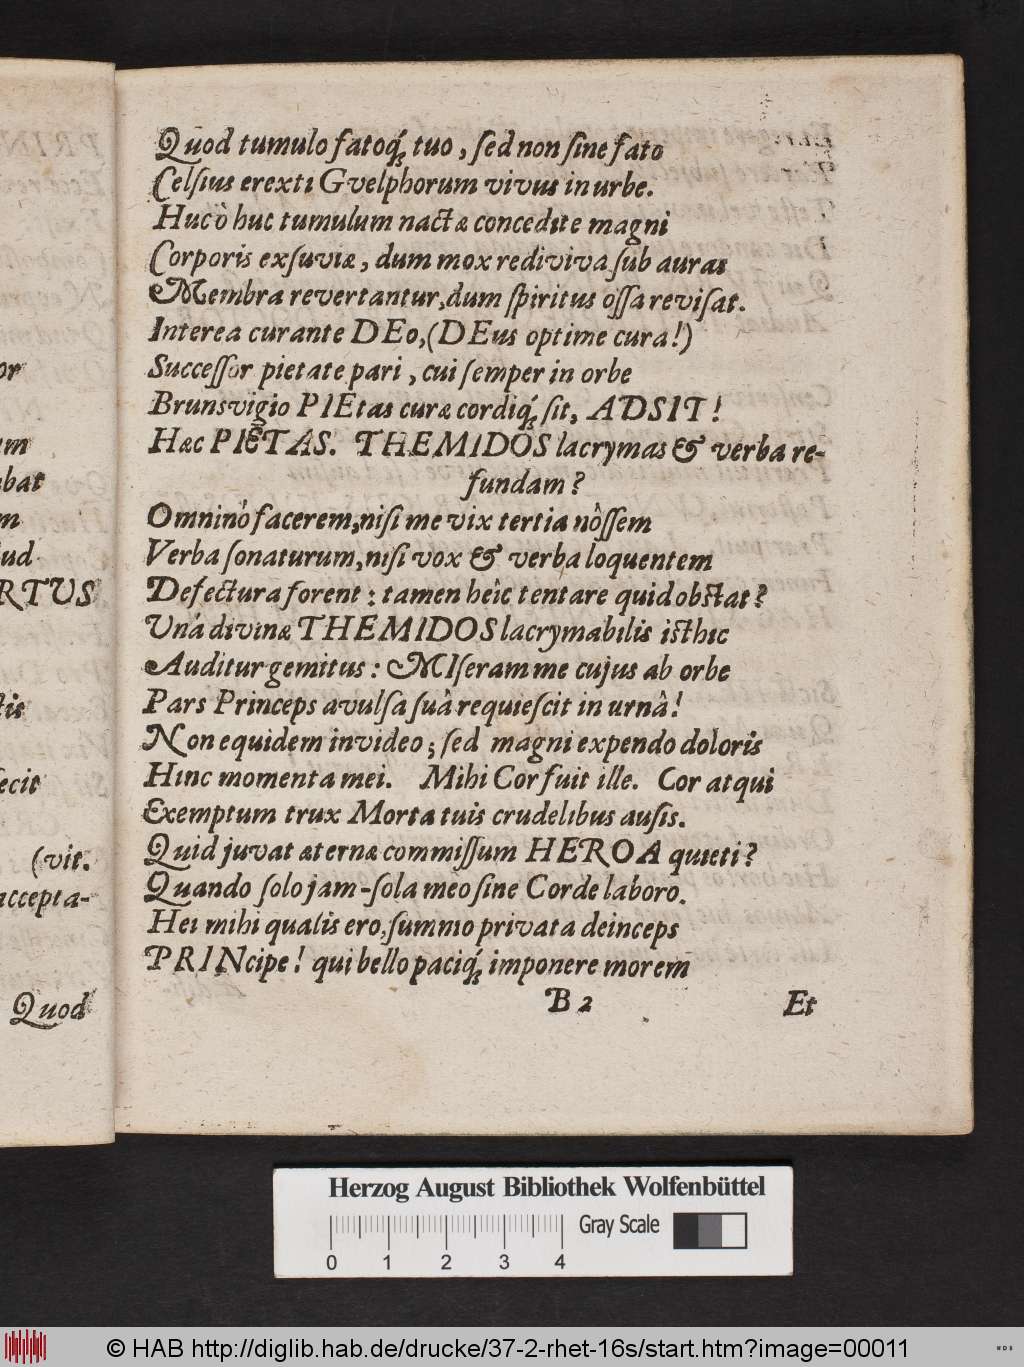 or
um
bat
m
ud
RTUS
tis
ecit
(vit.
accepta-
Quod
Quod tumulo fatoq́; tuo, ſed non ſine fato
Celſius erexti Gvelphorum vivus in urbe.
Huc ò huc tumulum nactæ concedite magni
Corporis exſuviæ, dum mox rediviva ſub auras
Membra revertantur, dum ſpiritus oſſa reviſat.
Interea curante DEo, (DEus optime cura!)
Succeſſor pietate pari, cui ſemper in orbe
Brunsvigio PIEtas curæ cordiq́; ſit, ADSIT!
Hæc PIETAS. THEMIDOS lacrymas & verba re-
fundam?
Omninò facerem, niſi me vix tertia nôſſem
Verba ſonaturum, niſi vox & verba loquentem
Defectura forent: tamen heîc tentare quid obſtat?
Unà divinæ THEMIDOS lacrymabilis iſthic
Auditur gemitus: MIſeram me cujus ab orbe
Pars Princeps avulſa ſuâ requieſcit in urnâ!
Non equidem invideo; ſed magni expendo doloris
Hinc momenta mei. Mihi Cor fuit ille. Cor atqui
Exemptum trux Morta tuis crudelibus auſis.
Quid juvat æternæ commiſſum HEROA quieti?
Quando ſolo jam-ſola meo ſine Corde laboro.
Hei mihi qualis ero, ſummo privata deinceps
PRINcipe! qui bello paciq́; imponere morem
B 2 Et
Herzog August Bibliothek Wolfenbüttel
Gray Scale
0 1 2 3 4
© HAB http://diglib.hab.de/drucke/37-2-rhet-16s/start.htm?image=00011